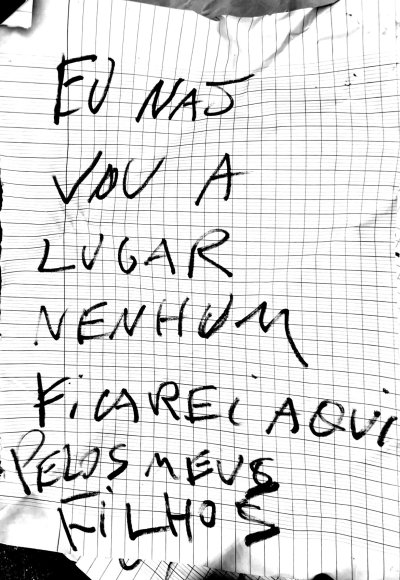 EU NAO
VOU A
LUGAR
NENHUM
FiCAREi AQUi
PELOS MEUS
FiLHOS